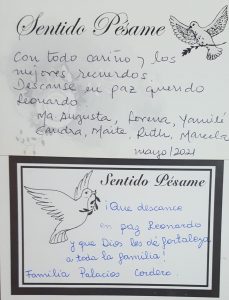 Sentido Pésame
Con todo cariño y los
mejores recuerdos.
Descanse en paz querido
Leonardo.
Ma. Augusta, Lorena, Yamilé
Sandra, Maite, Ruth, Marcela
mayo/2021
Sentido Pésame
¡Que descance
en paz Leonardo
y que Dios les de fortaleza
a toda la familia!
Familia Palacios Cordero.